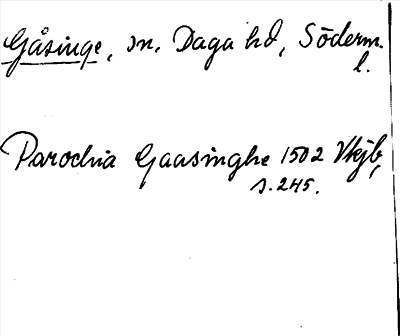 Gåsinge, sn. Daga hd, Söderm.
l.
Parochia Gaasinghe 1502 Vkjb,
s. 245.